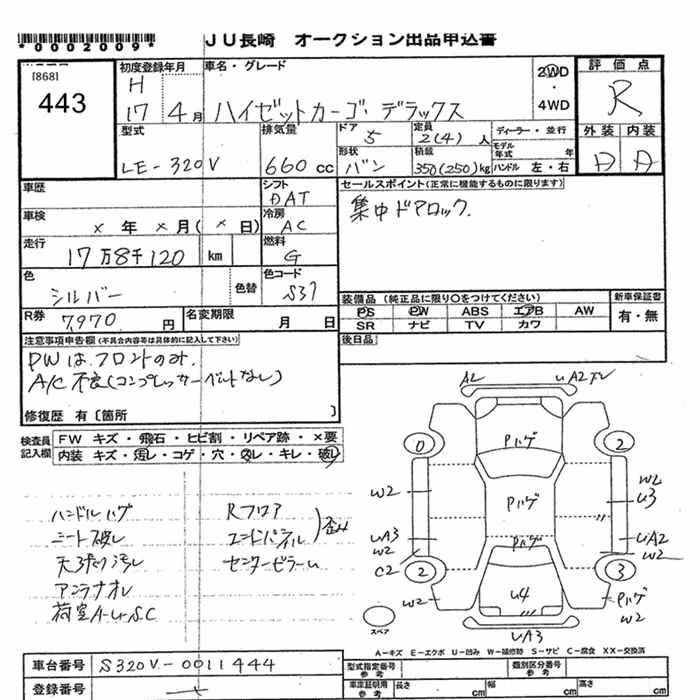 *0002009* JU長崎 オークション出品申込書
[868]
443
初度登録年月 車名・グレード 評価点
H 17 4月 ハイゼットカーゴ デラックス 2WD・4WD R
型式 排気量 ドア 5 定員 2(4)人 ディーラー・並行 外装 内装
LE-320V 660cc 形状 バン 積載 350(250)kg モデル年式 年 ハンドル 左・右 D D
車歴 シフト DAT セールスポイント(正常に機能するものに限ります)
車検 × 年 × 月(× 日) 冷房 AC 集中ドアロック.
走行 17万8千120 km 燃料 G
色 シルバー 色替 色コード S37
装備品(純正品に限り○をつけてください) 新車保証書
R券 7,970円 名変期限 月 日 PS PW ABS エアB AW 有・無
SR ナビ TV カワ
注意事項申告欄(不具合内容等は具体的に記入して下さい) 後日品
PWはフロントのみ.
A/C不良(コンプレッサーベルトなし)
修復歴 有〔箇所 〕
検査員記入欄 FW キズ・飛石・ヒビ割・リペア跡・×要
内装 キズ・汚レ・コゲ・穴・スレ・キレ・破レ
ハンドルハゲ Rフロア
シート破レ エンドパネル 歪ム
天張り汚レ センターピラーU
アンテナオレ
荷室A・U・S・C
A2 UA2
Pハゲ
0 2
W2 Pハゲ W2
U3
UA3 W2 Pハゲ UA2 W2
C2 2 3
W2 U4 Pハゲ W2
UA3
スペア
A−キズ E−エクボ U−凹み W−補修跡 S−サビ C−腐食 XX−交換済
車台番号 S320V-0011444 型式指定番号 参考 個別区分番号 参考
登録番号 車庫証明用 参考 長さ cm 幅 cm 高さ cm